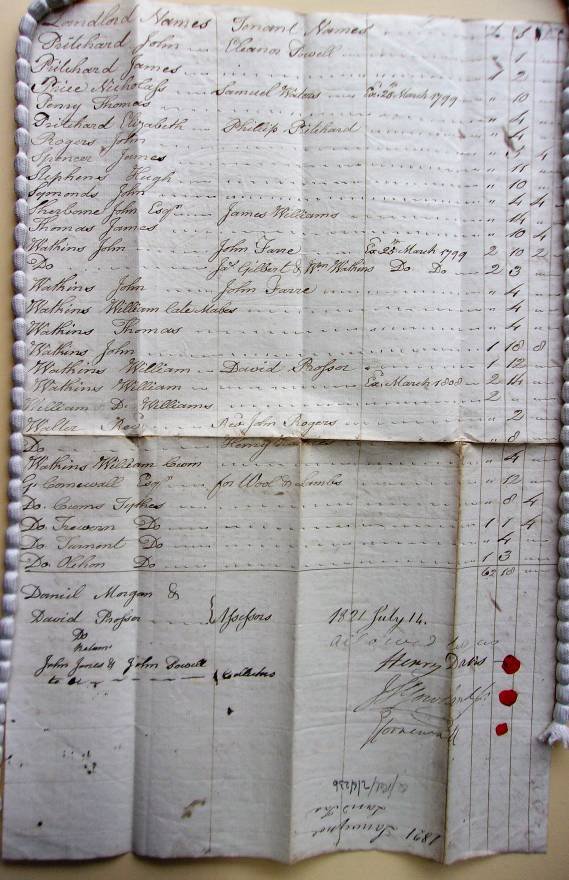 Landlord Names Tenant Names £ S
Pritchard John Eleanor Powell " 1
Pritchard James 7 2
Price Nicholass Samuel Watkins Ex 28 March 1799 " 10
Penny Thomas " 4
Pritchard Elizabeth Phillip Pritchard " 4
Rogers John
Spencer James
Stephens Hugh " 10
Symonds John " 4 4
Sherborne John Esqr James Williams " 14
Thomas James " 10 4
Watkins John John Farre Ex 28 March 1799 2 10 2
Do Jas Gilbert & Wm Watkins Do Do 2 3
Watkins John John Farre " 4
Watkins William late Mabes " 4
Watkins Thomas " 4
Watkins John 1 18 8
Watkins William David Prosser 1 12
Watkins William Ex March 1808 2 14
William D. Williams 2
Waller Rev Rev John Rogers " 2
Do Henry " 8
Watkins William Cwm " 4
G. Cornewall Esqr for Wool & Lambs " 12
Do Cwms Tythes " 8 4
Do Trewern Do 1 1 4
Do Turnant Do " 4
Do Do 1 3
62 18
Daniel Morgan &
David Prosser Assessors 1821 July 14.
Do allowed by us
John Jones & John Powell Collectors Henry Davis
to be
1821